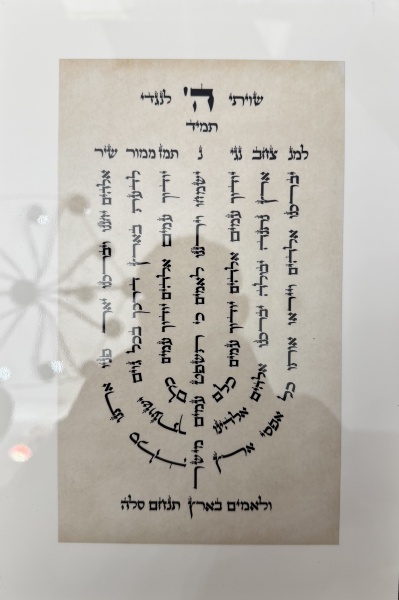 שויתי ה' לנגדי
תמיד
למנ צחב נגי נ תמז מור שיר
אלהים יחננו ויברכנו יאר פניו אתנו סלה
לדעת בארץ דרכך בכל גוים ישועתך
יודוך עמים אלהים יודוך עמים כלם
ישמחו וירננו לאמים כי תשפט עמים מישר
יודוך עמים אלהים יודוך עמים כלם
ארץ נתנה יבולה יברכנו אלהים אלהינו
יברכנו אלהים וייראו אותו כל אפסי ארץ
ולאמים בארץ תנחם סלה